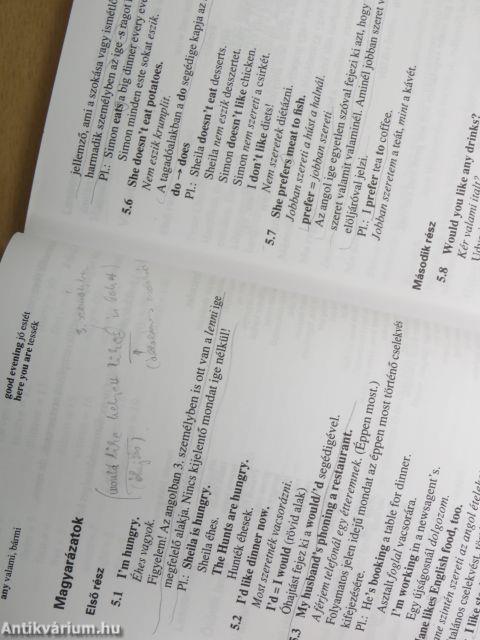 any valami, bármi
good evening jó estét
here you are tessék
Magyarázatok
Első rész
5.1 I'm hungry.
Éhes vagyok.
Figyelem! Az angolban 3. személyben is ott van a lenni ige
megfelelő alakja. Nincs kijelentő mondat ige nélkül!
Pl.: Sheila is hungry.
Sheila éhes.
The Hunts are hungry.
Hunték éhesek.
5.2 I'd like dinner now.
Most szeretnék vacsorázni.
I'd = I would (rövid alak)
Óhajtást fejez ki a would/'d segédigével.
5.3 My husband's phoning a restaurant.
A férjem telefonál egy étteremnek.
Folyamatos jelen idejű mondat az éppen most történő cselekvés
kifejezésére.
Pl.: He's booking a table for dinner. (Éppen most.)
Asztalt foglal vacsorára.
I'm working in a newsagent's.
Egy újságosnál dolgozom.
likes English food, too.
szintén szereti az angol
jellemző, ami a szokása vagy
harmadik személyben az ige -s
Pl.: Simon eats a big dinner every
Simon minden este sokat eszik.
5.6 She doesn't eat potatoes.
Nem eszik krumplit.
A tagadóalakban a do segédige kapja az
do → does
Pl.: Sheila doesn't eat desserts.
Sheila nem eszik desszertet.
Simon doesn't like chicken.
Simon nem szereti a csirkét.
I don't like diets!
Nem szeretek diétázni.
5.7 She prefers meat to fish.
Jobban szereti a húst a halnál.
prefer = jobban szeret
Az angol ige egyetlen szóval fejezi ki azt, hogy
szeret valamit valaminél. Aminél jobban szeret
elöljáróval jelzi.
Pl.: I prefer tea to coffee.
Jobban szeretem a teát, mint a kávét.
Második rész
5.8 Would you like any drinks?
Kér valami italt?
Antikvárium.hu